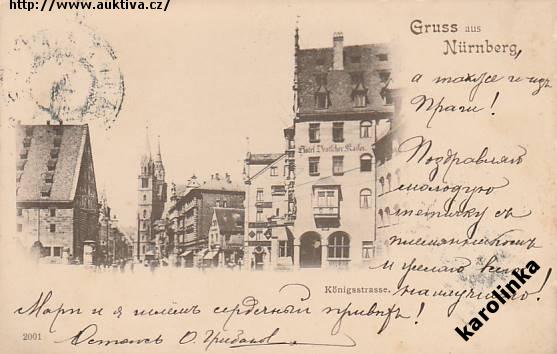 http://www.auktiva.cz/
Gruss aus
Nürnberg,
а также и из
Праги!
Поздравляю
молодую
тетичку съ
племянникомъ
и желаю всего
наилучшаго!
Hotel Deutscher Kaiser.
Königsstrasse.
Мари и я шлемъ сердечный привѣтъ!
2001
karolinka